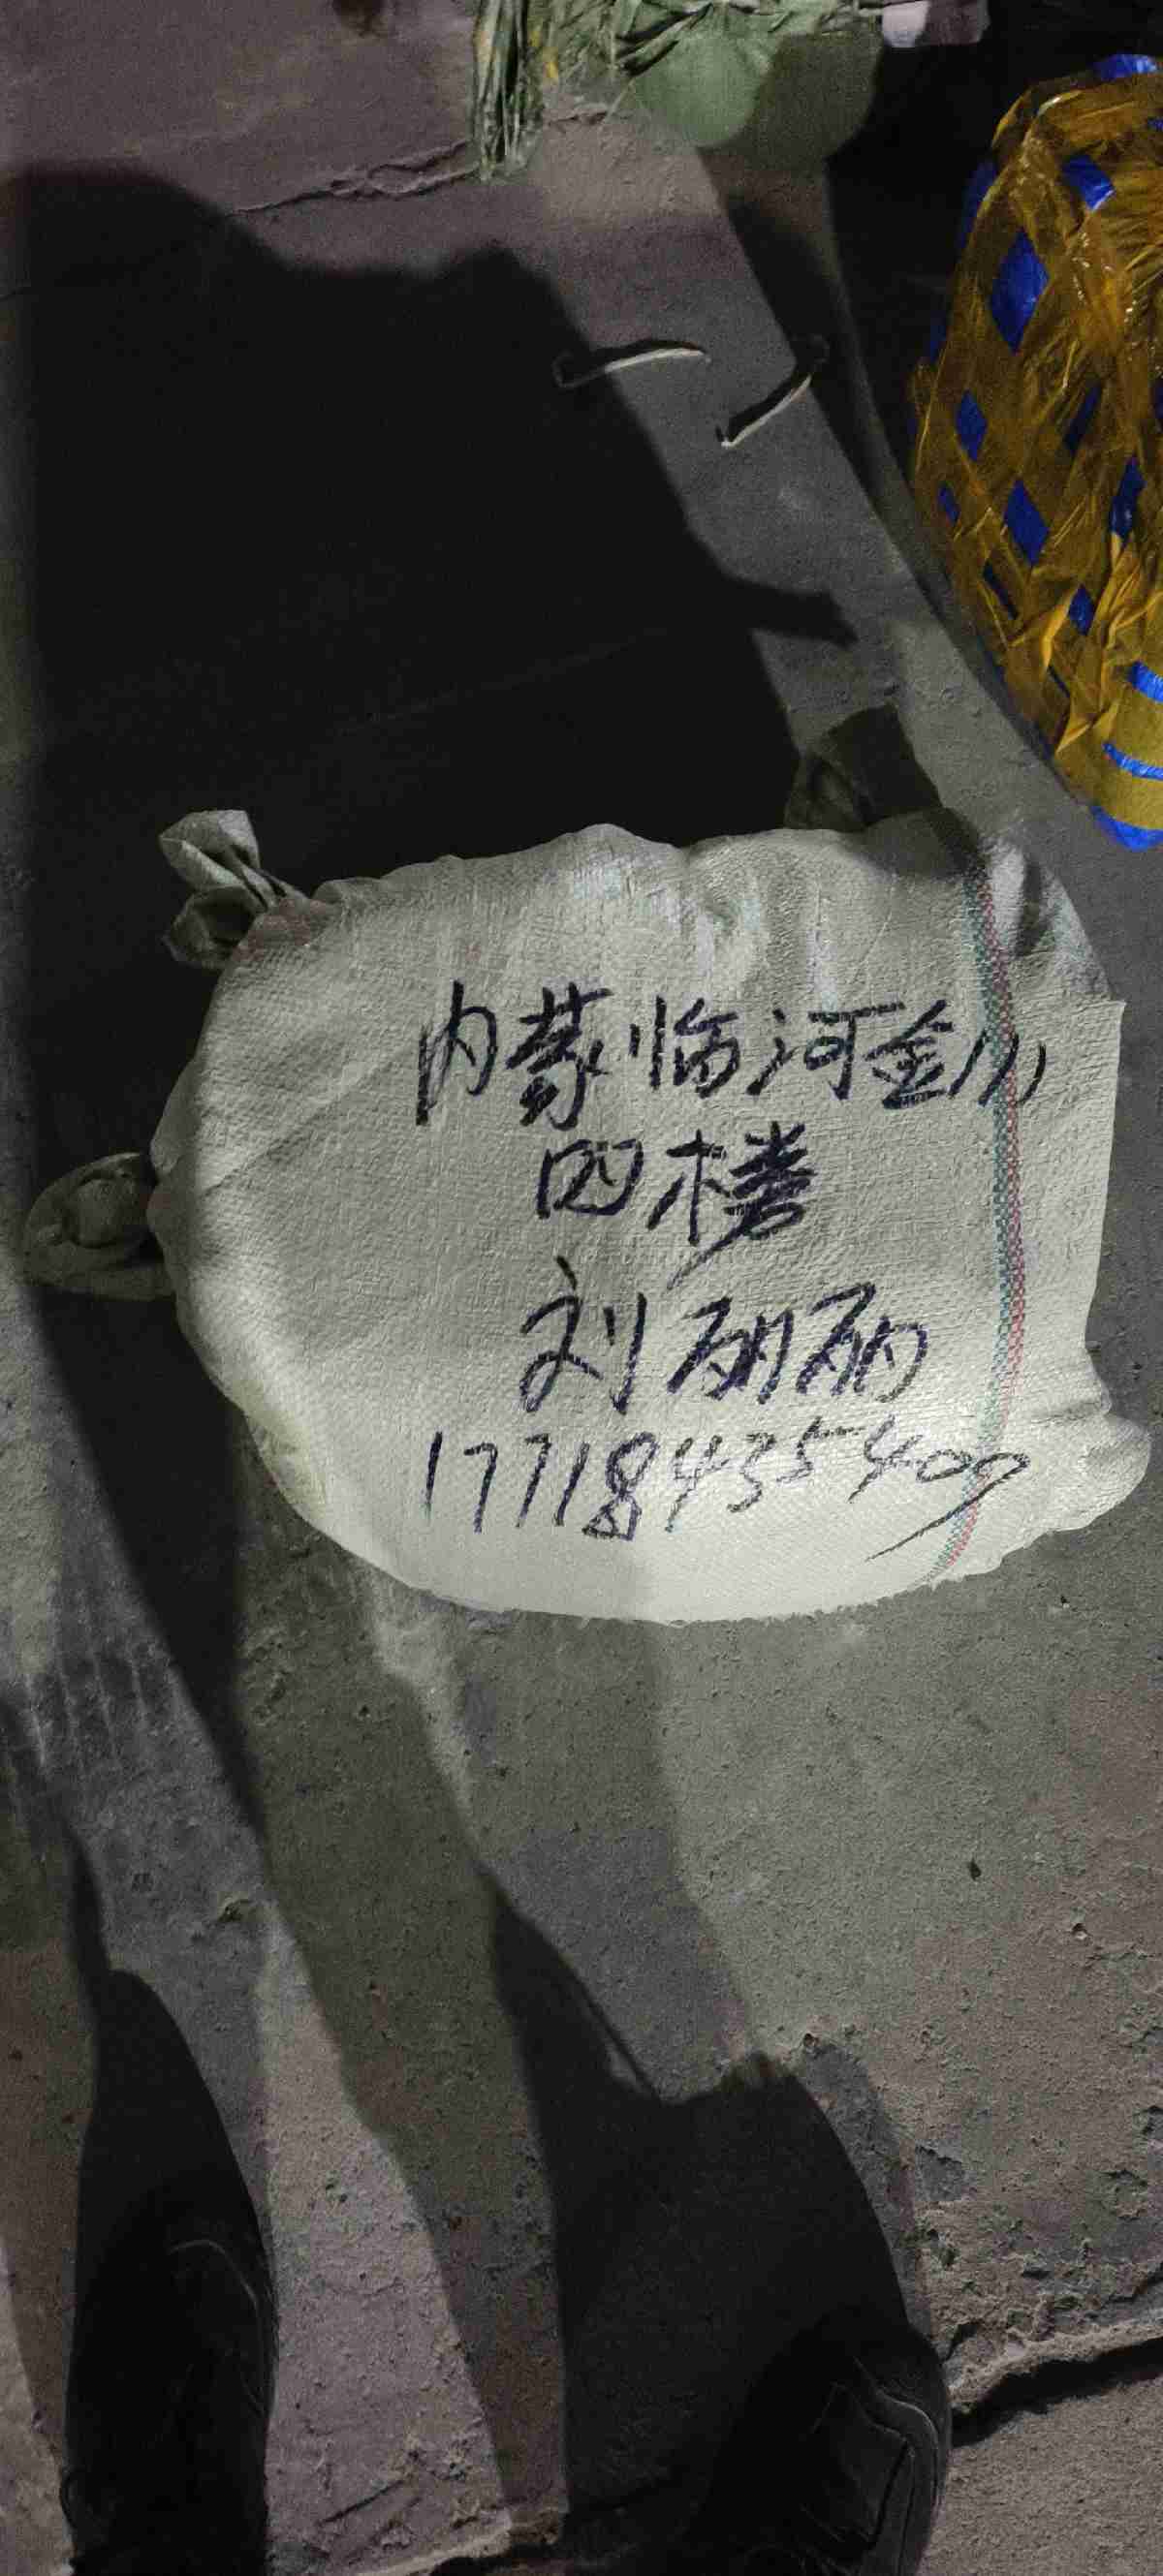 内蒙临河金川
四楼
刘丽丽
17718435409